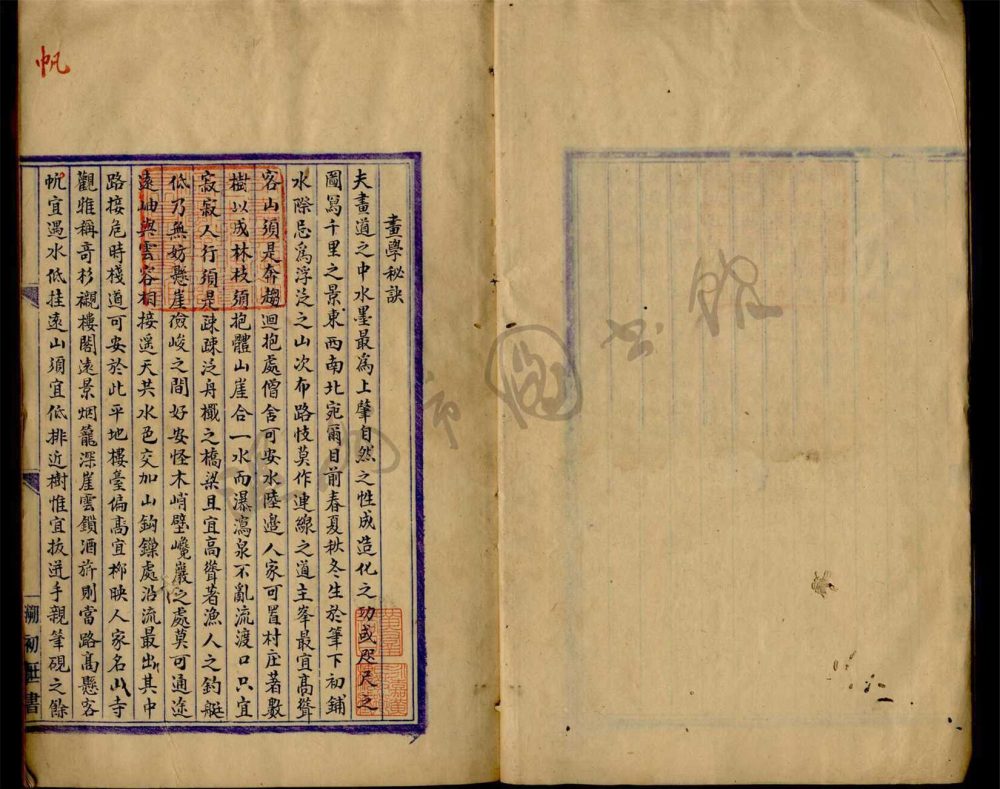 帆
畫學秘訣
夫畫道之中水墨最爲上肇自然之性成造化之功或咫尺之
圖寫千里之景東西南北宛爾目前春夏秋冬生於筆下初鋪
水際忌爲浮泛之山次布路岐莫作連線之道主峯最宜高聳
客山須是奔趨迴抱處僧舍可安水陸邊人家可置村庄著數
樹以成林枝須抱體山崖合一水而瀑瀉泉不亂流渡口只宜
寂寂人行須是疎疎泛舟檝之橋梁且宜高聳著漁人之釣艇
低乃無妨懸崖險峻之間好安怪木峭壁巉巖之處莫可通途
遠岫與雲容相接遥天共水色交加山鈎鏁處沿流最出其中
路接危時棧道可安於此平地樓臺偏髙宜栁映人家名山寺
觀雅稱奇杉襯樓閣遠景烟籠深崖雲鎖酒斾則當路髙懸客
帆宜遇水低挂遠山須宜低排近樹惟宜拔迸手親筆硯之餘
溯初
書
市圖書館